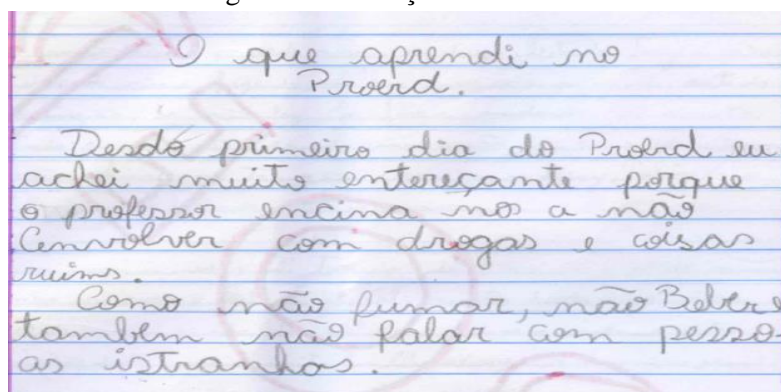 O que aprendi no
Proerd.
Desdo primeiro dia do Proerd eu
achei muito entereçante porque
o professor encina nos a não
Cenvolver com drogas e coisas
ruims.
Como não fumar, não Beber e
tambem não falar com pesso-
as istranhas.